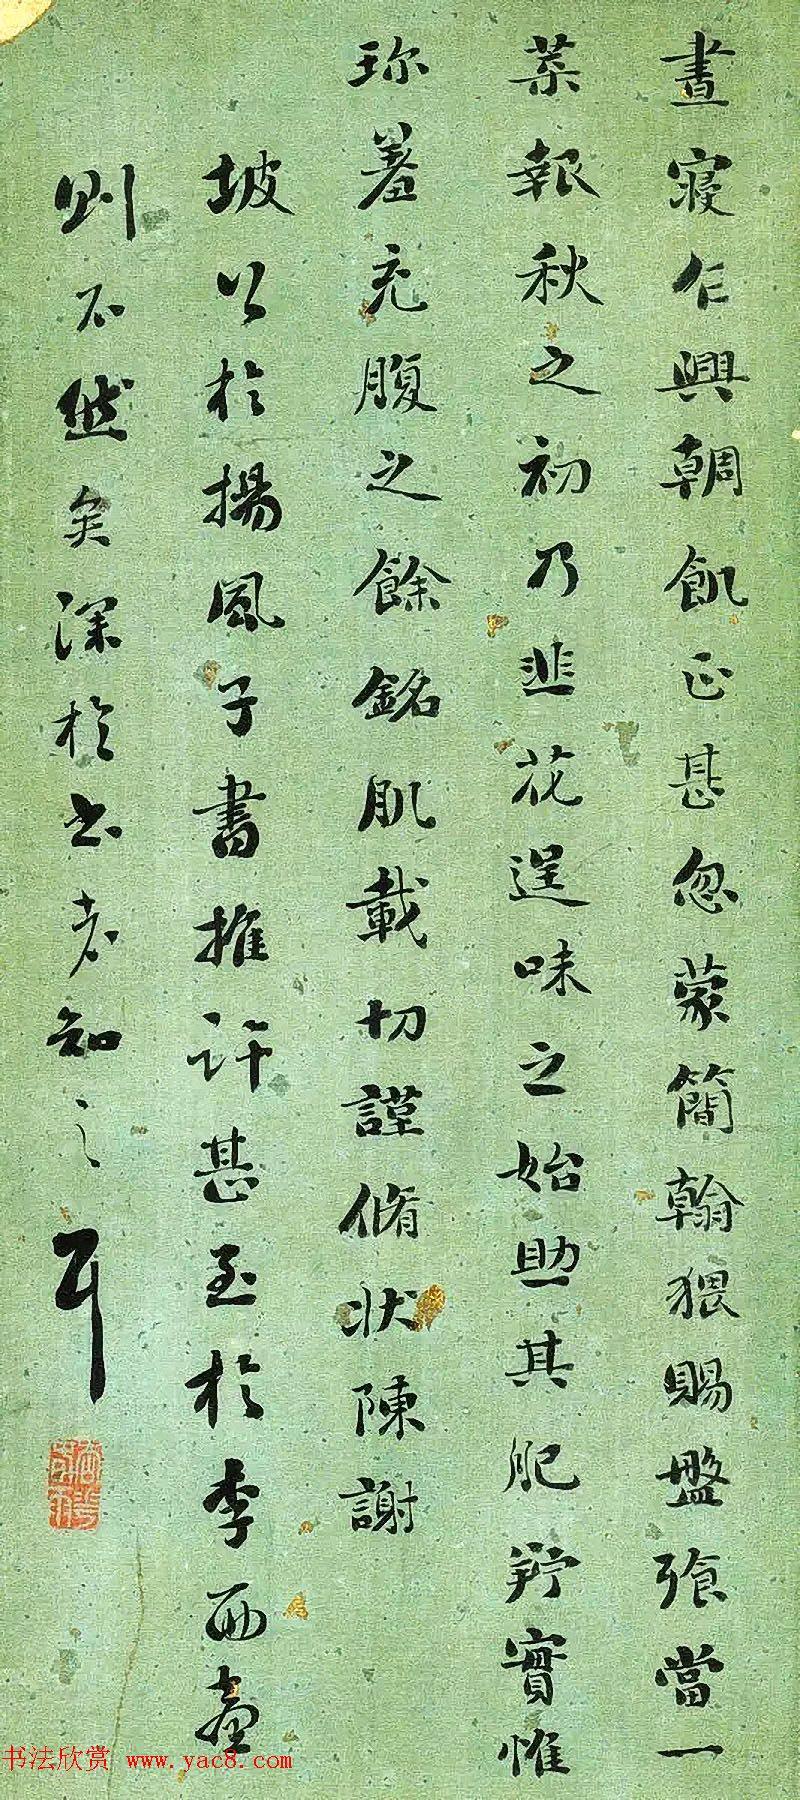 晝寢乍興輖飢正甚忽蒙簡翰猥賜盤飱當一
葉報秋之初乃韭花逞味之始助其肥羜實惟
珎羞充腹之餘銘肌載切謹脩狀陳謝
坡公於揚風子書推許甚至於李西臺
則不然矣深於書者知之耳
书法欣赏 www.yac8.com